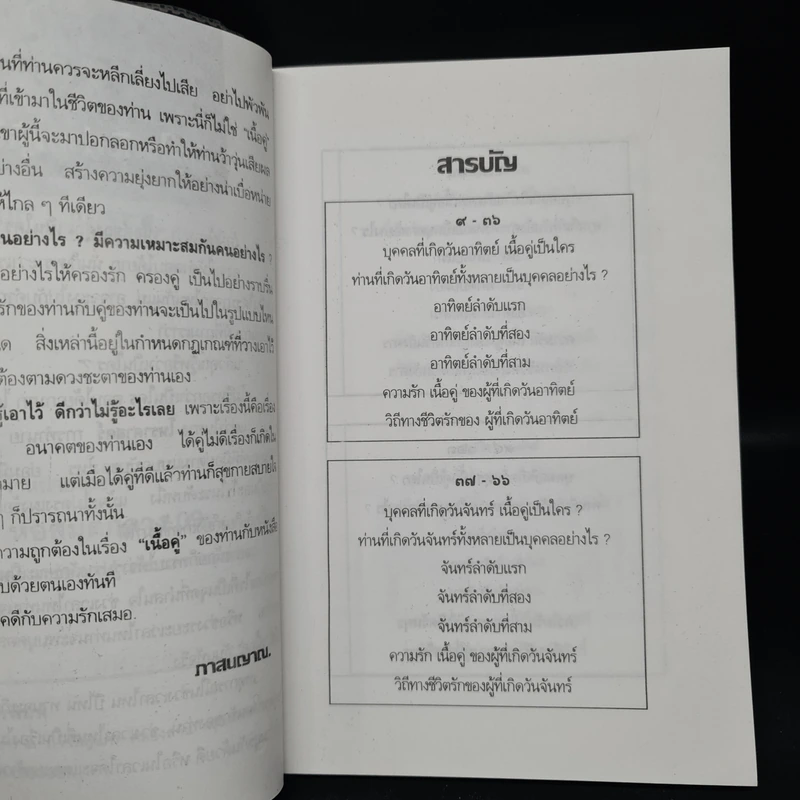 นที่ท่านควรจะหลีกเลี่ยงไปเสีย อย่าไปพัวพัน
ที่เข้ามาในชีวิตของท่าน เพราะนี่ก็ไม่ใช่ "เนื้อคู่"
ขาผู้นี้จะมาปอกลอกหรือทำให้ท่านว้าวุ่นเสียผล
ย่างอื่น สร้างความยุ่งยากให้อย่างน่าเบื่อหน่าย
ห้ไกล ๆ ทีเดียว
นอย่างไร ? มีความเหมาะสมกันคนอย่างไร ?
อย่างไรให้ครองรัก ครองคู่ เป็นไปอย่างราบรื่น
รักของท่านกับคู่ของท่านจะเป็นไปในรูปแบบไหน
ด สิ่งเหล่านี้อยู่ในกำหนดกฏเกณฑ์ที่วางเอาไว้
ต้องตามดวงชะตาของท่านเอง
รู้เอาไว้ ดีกว่าไม่รู้อะไรเลย เพราะเรื่องนี้คือเรื่อง
อนาคตของท่านเอง ได้คู่ไม่ดีเรื่องก็เกิดใน
มาย แต่เมื่อได้คู่ที่ดีแล้วท่านก็สุขกายสบายใจ
ๆ ก็ปรารถนาทั้งนั้น
ความถูกต้องในเรื่อง "เนื้อคู่" ของท่านกับหนังสือ
บด้วยตนเองทันที
คดีกับความรักเสมอ.
ภาสบญาณ.
สารบัญ
๙ - ๓๖
บุคคลที่เกิดวันอาทิตย์ เนื้อคู่เป็นใคร
ท่านที่เกิดวันอาทิตย์ทั้งหลายเป็นบุคคลอย่างไร ?
อาทิตย์ลำดับแรก
อาทิตย์ลำดับที่สอง
อาทิตย์ลำดับที่สาม
ความรัก เนื้อคู่ ของผู้ที่เกิดวันอาทิตย์
วิถีทางชีวิตรักของ ผู้ที่เกิดวันอาทิตย์
๓๗ - ๖๖
บุคคลที่เกิดวันจันทร์ เนื้อคู่เป็นใคร ?
ท่านที่เกิดวันจันทร์ทั้งหลายเป็นบุคคลอย่างไร ?
จันทร์ลำดับแรก
จันทร์ลำดับที่สอง
จันทร์ลำดับที่สาม
ความรัก เนื้อคู่ ของผู้ที่เกิดวันจันทร์
วิถีทางชีวิตรักของผู้ที่เกิดวันจันทร์